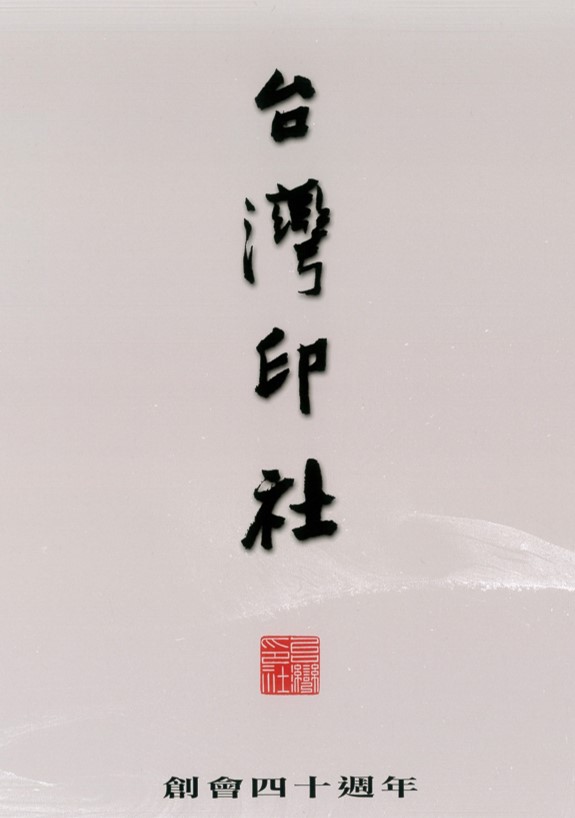 台灣印社
台灣印社
創會四十週年